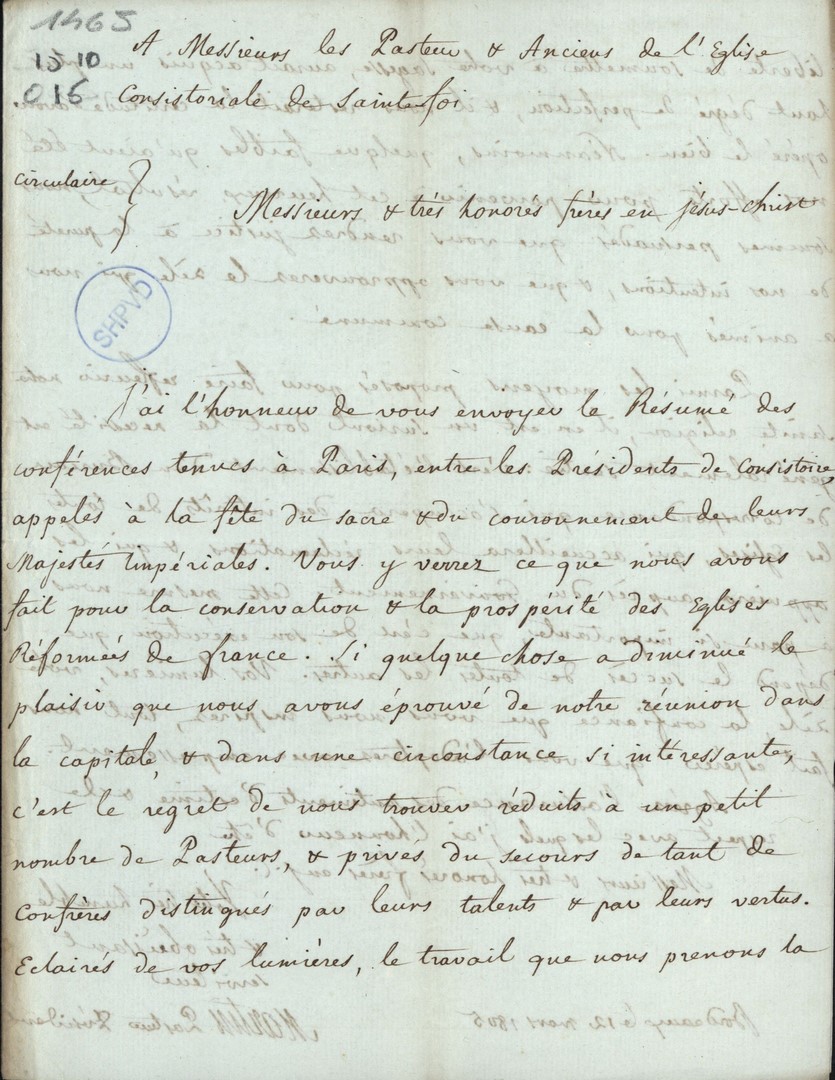 1465
15 10
016
A Messieurs les Pasteur & Anciens de l'Eglise
Consistoriale de Sainte foi
circulaire }
Messieurs & trés honorés frères en jésus-christ
SHPVD
J'ai l'honneur de vous envoyer le Résumé des
conférences tenues à Paris, entre les Présidents de Consistoire,
appelés à la fête du sacre & du couronnement de leurs
Majestés impériales. Vous y verrez ce que nous avons
fait pour la conservation & la prospérité des Eglises
Réformeés de france. Si quelque chose a diminué le
plaisir que nous avons éprouvé de notre réunion dans
la capitale & dans une circonstance si intéressante,
c'est le regret de nous trouver réduits à un petit
nombre de Pasteurs, & privés du secours de tant de
Confrères distingués par leurs talents & par leurs vertus.
Eclairés de vos lumiéres, le travail que nous prenons la